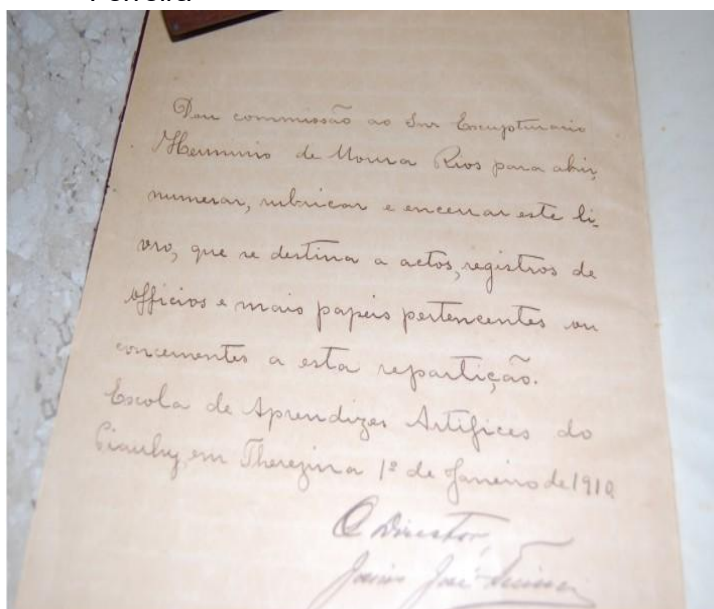 Ferreira
Dou commissão ao Snr Escripturario
Herminio de Moura Rios para abrir,
numerar, rubricar e encerrar este li-
vro, que se destina a actos, registros de
officios e mais papeis pertencentes ou
concernentes a esta repartição.
Escola de Aprendizes Artifices do
Piauhy, em Therezina 1º de Janeiro de 1910
O Director,
José